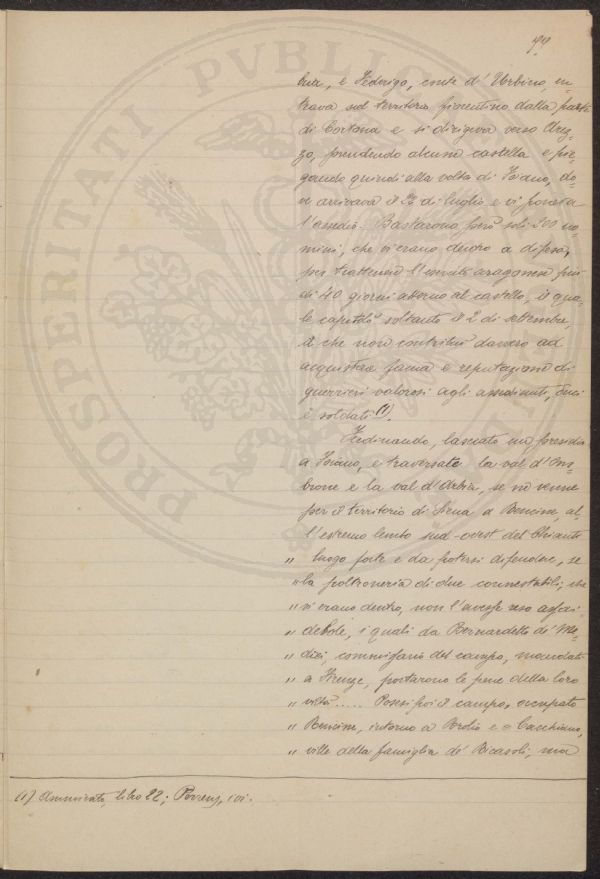 99.
bria, e Federigo, conte d'Urbino, en-
trava sul territorio fiorentino dalla parte
di Cortona e si dirigeva verso Arez-
zo, prendendo alcune castella e pie-
gando quindi alla volta di Foiano, do-
ve arrivava il 23 di luglio e vi poneva
l'assedio. Bastarono però soli 300 uo-
mini, che vi erano dentro a difesa,
per trattenere l'esercito aragonese più
di 40 giorni attorno al castello, il qua-
le capitolò soltanto il 2 di settembre,
il che non contribuì davvero ad
acquistare fama e reputazione di
guerrieri valorosi agli assedianti, duci
e soldati (1).
Ferdinando, lasciato un presidio
a Foiano, e traversate la val d'Om-
brone e la val d'Arbia, se ne venne
per il territorio di Siena a Brncine, al-
l'estremo lembo sud-ovest del Chianti
" luogo forte e da potersi difendere, se
" la poltroneria di due connestabili, che
" vi erano dentro, non l'avesse reso assai
" debole, i quali da Bernardetto de' Me-
" dici, commissario del campo, mandati
" a Firenze, portarono le pene della loro
" viltà..... Possi poi il campo, occupato
" Brncine, intorno a Brolio e a Cacchiano,
" ville della famiglia de' Ricasoli, ma
(1) Ammirato, libro 22; Porzenz, ivi.
PROSPERITATI PVBLICAE